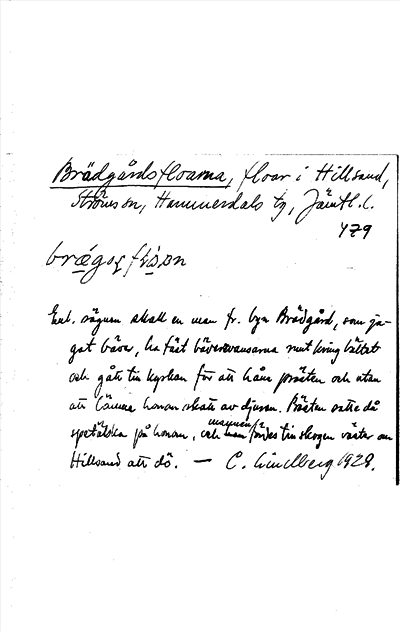 Brädgårdsfloarna, floar i Hillsand,
Ströms sn, Hammerdals tg, Jämtl. l.
479
Enl. sägnen skall en man fr. byn Brädgård, som ja-
gat bäver, ha fäst bäversvansarna runt kring bältet
och gått till kyrkan för att håna prästen och utan
att lämna honom skatt av djuren. Prästen satte då
spetälska på honom, och mannen fördes till skogen väster om
Hillsand att dö. — C. Lindberg 1928.